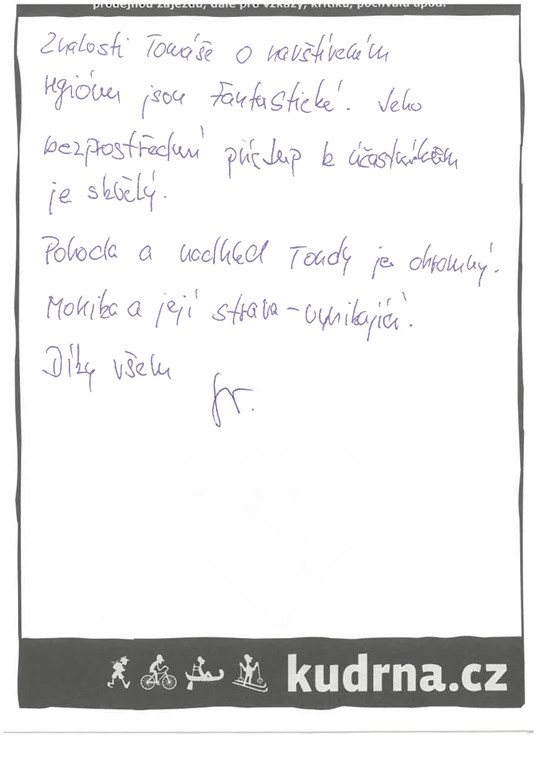 prodejnou zájezdu, dále pro vzkazy, kritiku, pochvalu apod.
Znalosti Tomáše o navštíveném
regiónu jsou fantastické. Jeho
bezprostřední přístup k účastníkům
je skvělý.
Pohoda a nadhled Tondy je ohromný.
Monika a její strava - vynikající.
Díky všem
kudrna.cz